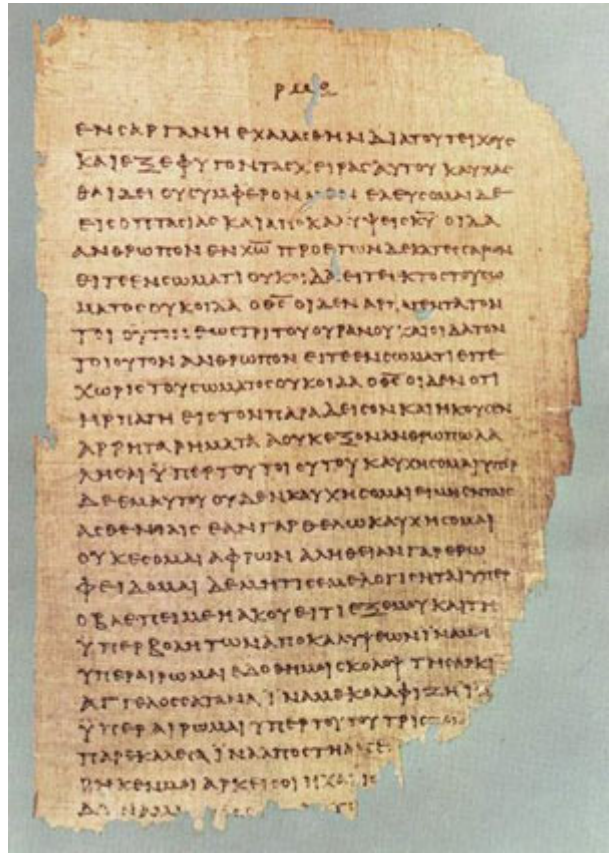 ρμθ
ΕΝ ΣΑΡΓΑΝΗ ΕΧΑΛΑΣΘΗΝ ΔΙΑ ΤΟΥ ΤΕΙΧΟΥΣ
ΚΑΙ ΕΞΕΦΥΓΟΝ ΤΑΣ ΧΕΙΡΑΣ ΑΥΤΟΥ ΚΑΥΧΑΣ
ΘΑΙ ΔΕΙ ΟΥ ΣΥΜΦΕΡΟΝ ΜΕΝ ΕΛΕΥΣΟΜΑΙ ΔΕ
ΕΙΣ ΟΠΤΑΣΙΑΣ ΚΑΙ ΑΠΟΚΑΛΥΨΕΙΣ Κ̅Υ̅ ΟΙΔΑ
ΑΝΘΡΩΠΟΝ ΕΝ Χ̅Ω̅ ΠΡΟ ΕΤΩΝ ΔΕΚΑΤΕΣΣΑΡΩΝ
ΕΙΤΕ ΕΝ ΣΩΜΑΤΙ ΟΥΚ ΟΙΔΑ ΕΙΤΕ ΕΚΤΟΣ ΤΟΥ ΣΩ
ΜΑΤΟΣ ΟΥΚ ΟΙΔΑ Ο Θ̅Σ̅ ΟΙΔΕΝ ΑΡΠΑΓΕΝΤΑ ΤΟΝ
ΤΟΙΟΥΤΟΝ ΕΩΣ ΤΡΙΤΟΥ ΟΥΡΑΝΟΥ ΚΑΙ ΟΙΔΑ ΤΟΝ
ΤΟΙΟΥΤΟΝ ΑΝΘΡΩΠΟΝ ΕΙΤΕ ΕΝ ΣΩΜΑΤΙ ΕΙΤΕ
ΧΩΡΙΣ ΤΟΥ ΣΩΜΑΤΟΣ ΟΥΚ ΟΙΔΑ Ο Θ̅Σ̅ ΟΙΔΕΝ ΟΤΙ
ΗΡΠΑΓΗ ΕΙΣ ΤΟΝ ΠΑΡΑΔΕΙΣΟΝ ΚΑΙ ΗΚΟΥΣΕΝ
ΑΡΡΗΤΑ ΡΗΜΑΤΑ Α ΟΥΚ ΕΞΟΝ ΑΝΘΡΩΠΩ ΛΑ
ΛΗΣΑΙ ΫΠΕΡ ΤΟΥ ΤΟΙΟΥΤΟΥ ΚΑΥΧΗΣΟΜΑΙ ΥΠΕΡ
ΔΕ ΕΜΑΥΤΟΥ ΟΥΔΕΝ ΚΑΥΧΗΣΟΜΑΙ ΕΙ ΜΗ ΕΝ ΤΑΙΣ
ΑΣΘΕΝΙΑΙΣ ΕΑΝ ΓΑΡ ΘΕΛΩ ΚΑΥΧΗΣΟΜΑΙ
ΟΥΚ ΕΣΟΜΑΙ ΑΦΡΩΝ ΑΛΗΘΕΙΑΝ ΓΑΡ ΕΡΩ
ΦΕΙΔΟΜΑΙ ΔΕ ΜΗ ΤΙΣ ΕΜΕ ΛΟΓΙΣΗΤΑΙ ΥΠΕΡ
Ο ΒΛΕΠΕΙ ΜΕ Η ΑΚΟΥΕΙ ΤΙ ΕΞ ΕΜΟΥ ΚΑΙ ΤΗ
ΫΠΕΡΒΟΛΗ ΤΩΝ ΑΠΟΚΑΛΥΨΕΩΝ ΪΝΑ ΜΗ
ΥΠΕΡΑΙΡΩΜΑΙ ΕΔΟΘΗ ΜΟΙ ΣΚΟΛΟΨ ΤΗ ΣΑΡΚΙ
ΑΓΓΕΛΟΣ ΣΑΤΑΝΑ ΪΝΑ ΜΕ ΚΟΛΑΦΙΖΗ Ϊ
ΫΠΕΡΑΙΡΩΜΑΙ ΥΠΕΡ ΤΟΥΤΟΥ ΤΡΙΣ
ΠΑΡΕΚΑΛΕΣΑ ΪΝΑ ΑΠΟΣΤΗ Α
ΡΗΚΕΝ ΜΟΙ ΑΡΚΕΙ ΣΟΙ Η ΧΑΡΙΣ
ΔΥΝΑΜ